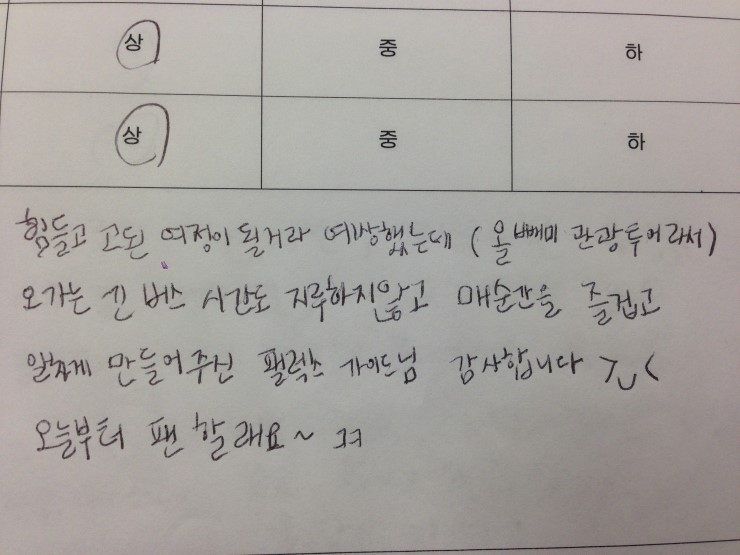 상 중 하
상 중 하
힘들고 고된 여정이 될거라 예상했는데 (올빼미 관광투어라서)
오가는 긴 버스 시간도 지루하지않고 매순간을 즐겁고
알차게 만들어주신 펠렉스 가이드님 감사합니다 >_<
오늘부터 팬 할래요~ ㅋㅋ